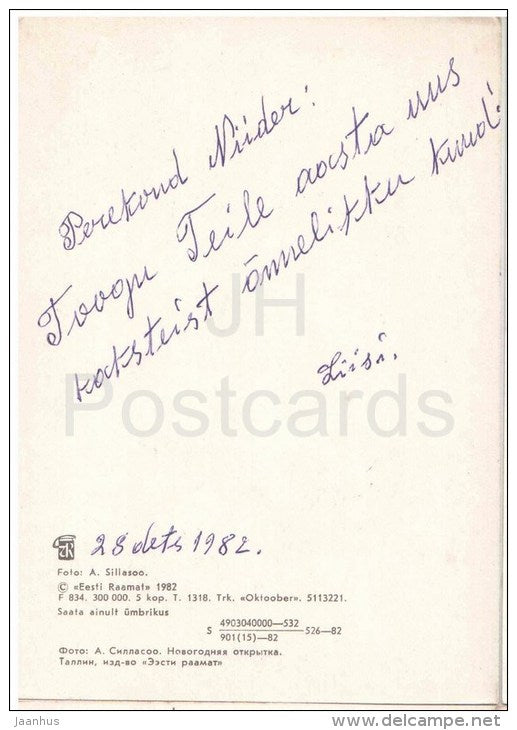 Perekond Niider!
Toogu Teile aasta uus
kaksteist õnnelikku kuud!
Liisi.
JH
Postcards
28 dets 1982.
Foto: A. Sillasoo.
© «Eesti Raamat» 1982
F 834. 300 000. 5 kop. T. 1318. Trk. «Oktoober». 5113221.
Saata ainult ümbrikus
S 4903040000—532
901(15)—82 526—82
Фото: А. Силласоо. Новогодняя открытка.
Таллин, изд-во «Ээсти раамат»
jaanhus
www.delcampe.net